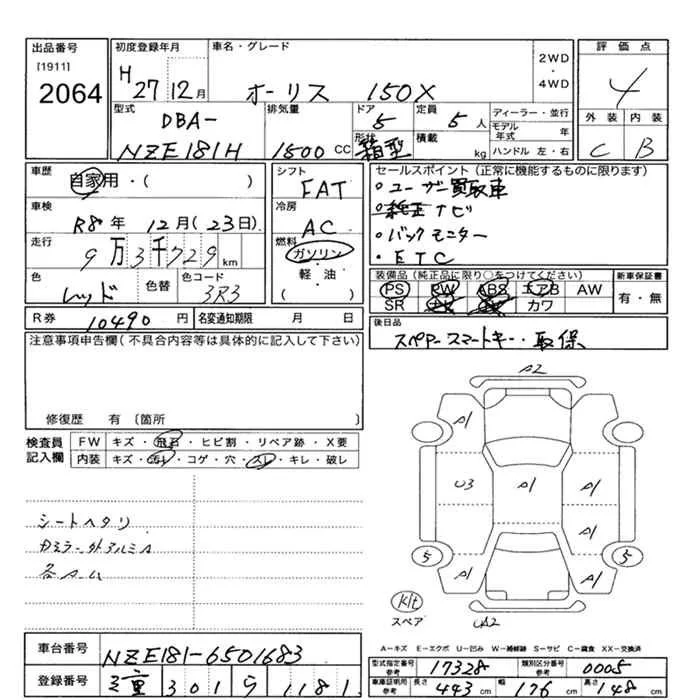 出品番号 初度登録年月 車名・グレード 2WD・4WD 評価点
[1911]
2064 H 27 12月 オーリス 150X 4
型式 排気量 ドア 定員 ディーラー・並行 外装 内装
DBA- 5 5人 モデル年式 年 C B
NZE181H 1500 CC 形状 箱型 積載 kg ハンドル 左・右
車歴 自家用・( ) シフト FAT セールスポイント (正常に機能するものに限ります)
・ユーザー買取車
車検 R8年 12月(23日) 冷房 AC ・純正ナビ
走行 9万3千729km 燃料 ガソリン ・バックモニター
軽・油 ・ETC
( )
色 レッド 色替 色コード 3R3
装備品 (純正品に限り○をつけてください) 新車保証書
PS RW ABS エアB AW 有・無
SR カワ
R券 10490円 名変通知期限 月 日
後日品
スペアースマートキー・取保
注意事項申告欄(不具合内容等は具体的に記入して下さい)
修復歴 有 〔箇所 〕
検査員記入欄 FW キズ・飛石・ヒビ割・リペア跡・X要
内装 キズ・汚レ・コゲ・穴・スレ・キレ・破レ
シートヘタリ
各アーム
A2
A1
U3 A1 A1
A1
5 5
A1 A1
Kit
スペア
A=キズ E=エクボ U=凹み W=補修跡 S=サビ C=腐食 XX=交換済
車台番号 NZE181-6501683
登録番号 三重 301 1181
型式指定番号 参考 17328 類別区分番号 参考 0005
車庫証明用 参考 長さ 443cm 幅 176cm 高さ 148cm